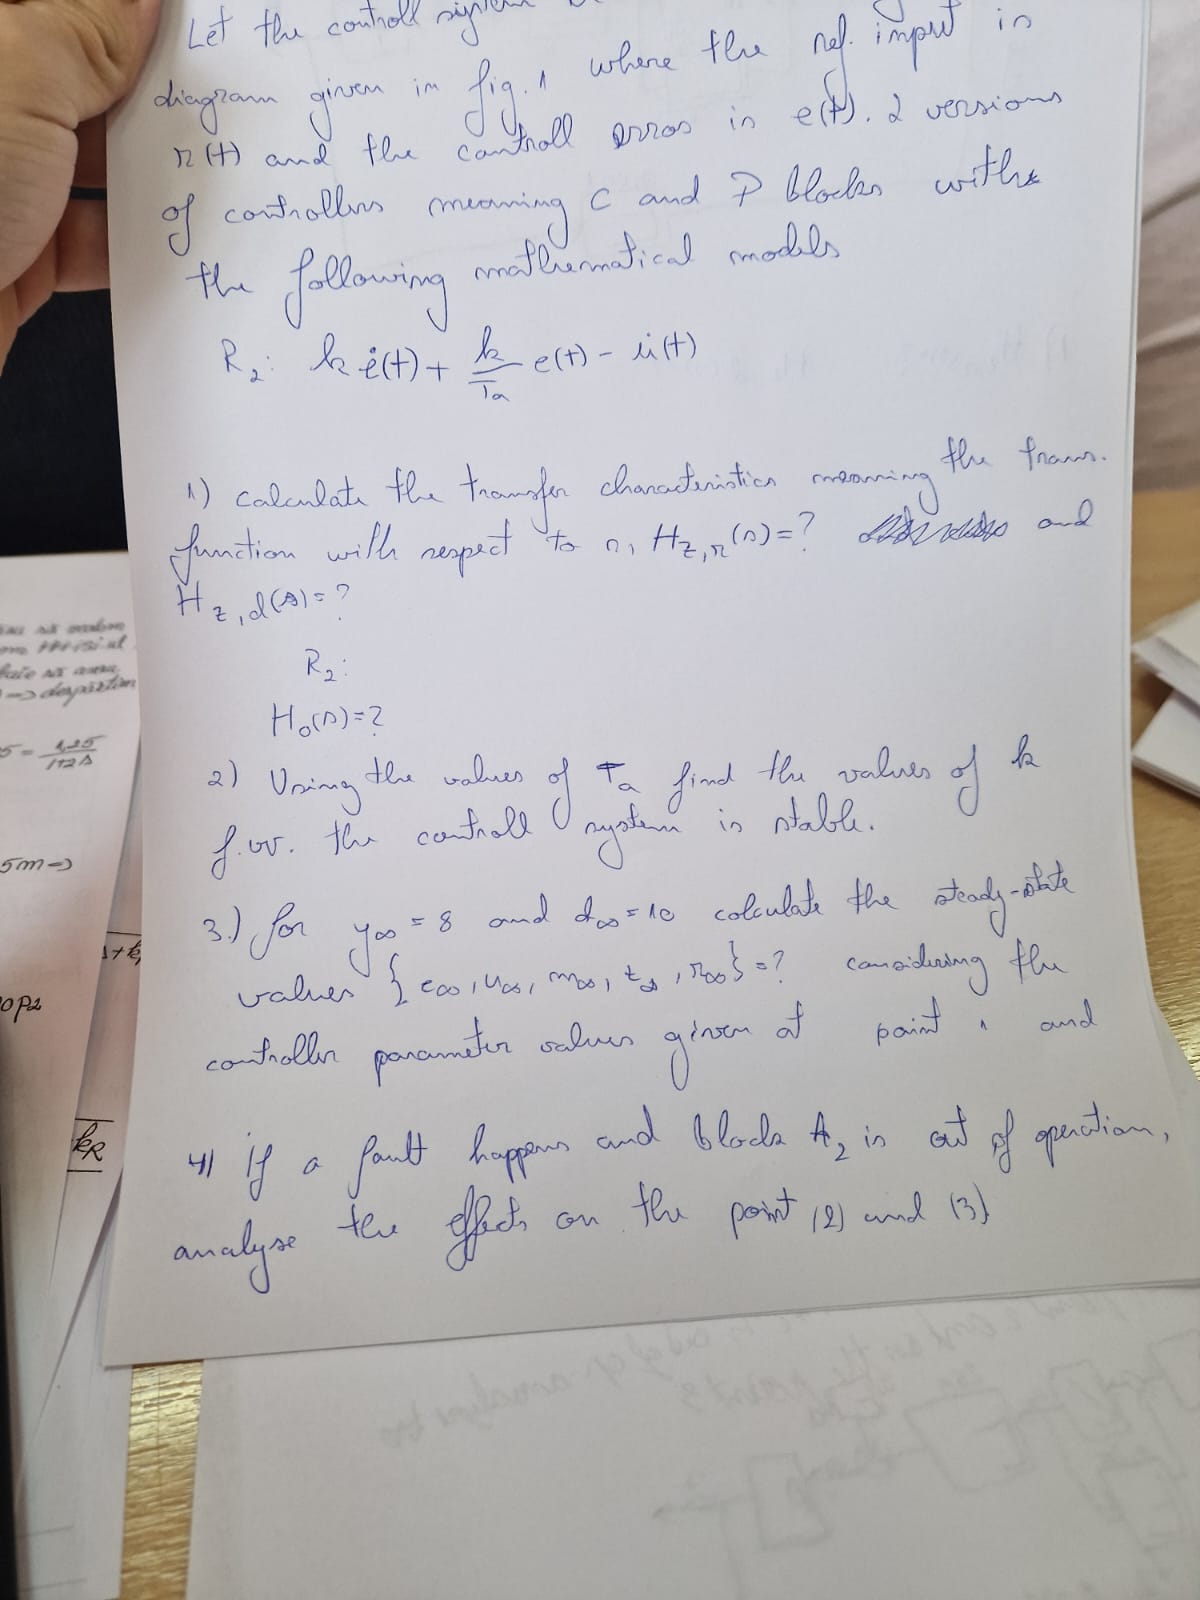 Let the controll system
diagram given in fig. 1 where the ref. input is
r(t) and the controll error is e(t). 2 versions
of controllers meaning C and P blocks with
the following mathematical models
R2: k ė(t) + k/Ta e(t) - u̇(t)
1) calculate the transfer characteristics meaning the trans.
function with respect to r, Hz,r(s)=? and
Hz,d(s)=?
R2:
H0(s)=?
2) Using the values of Ta find the values of k
f.w. the controll system is stable.
3.) for y∞ = 8 and d∞ = 10 calculate the steady-state
values {e∞, u∞, m∞, z∞, r∞}=? considering the
controller parameter values given at point 1 and
4) If a fault happens and block A2 is out of operation,
analyse the effects on the point (2) and (3)
5 = 1,25/1+2s
5m=>
kR